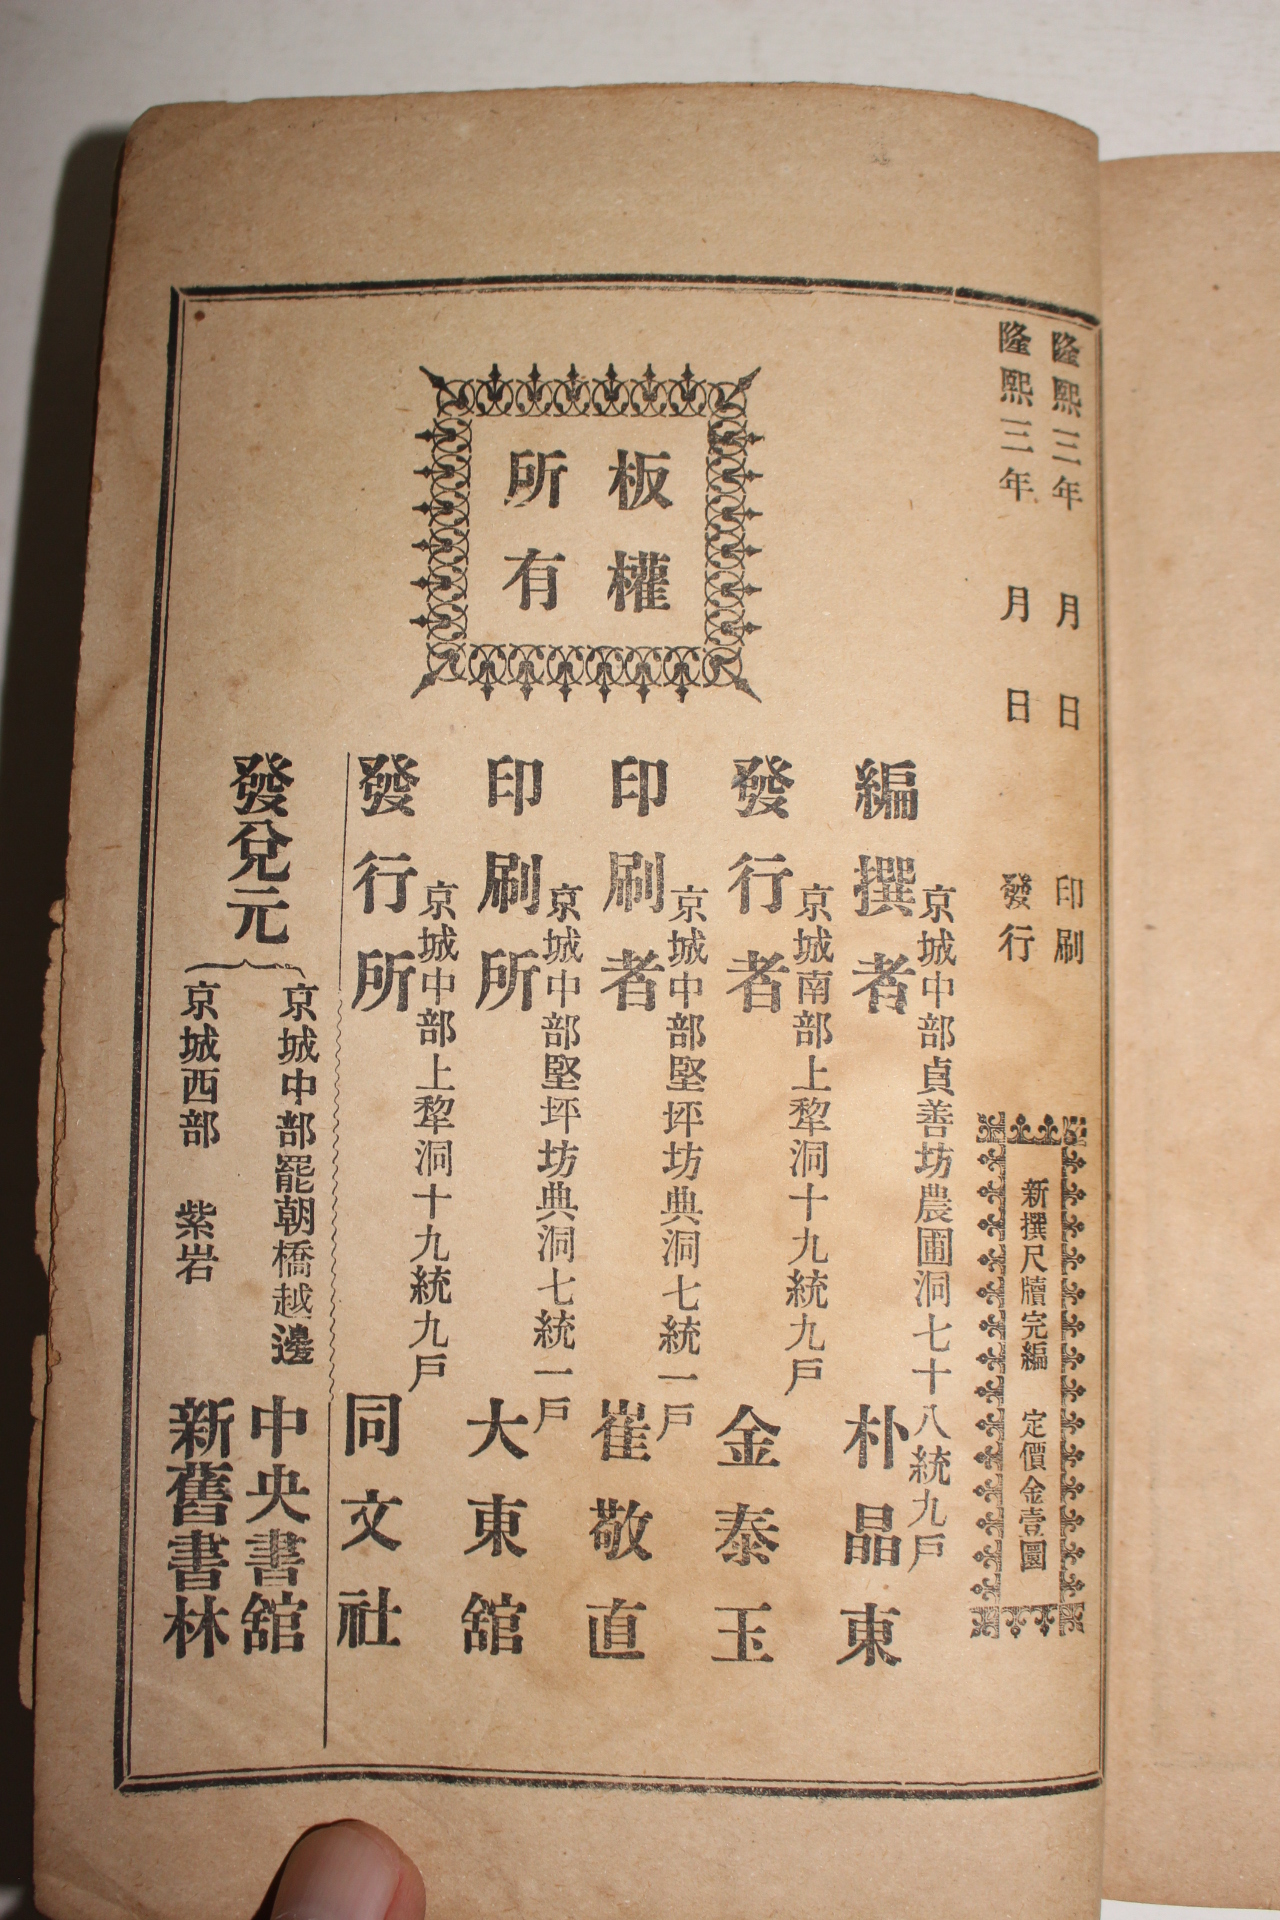 隆熙三年 月 日 印刷
隆熙三年 月 日 發行
新撰尺牘完編 定價金壹圜
板權
所有
京城中部貞善坊農圃洞七十八統九戶
編撰者 朴晶東
京城南部上犂洞十九統九戶
發行者 金泰玉
京城中部堅坪坊典洞七統一戶
印刷者 崔敬直
京城中部堅坪坊典洞七統一戶
印刷所 大東舘
京城中部上犂洞十九統九戶
發行所 同文社
發兌元
京城中部罷朝橋越邊 中央書舘
京城西部 紫岩 新舊書林